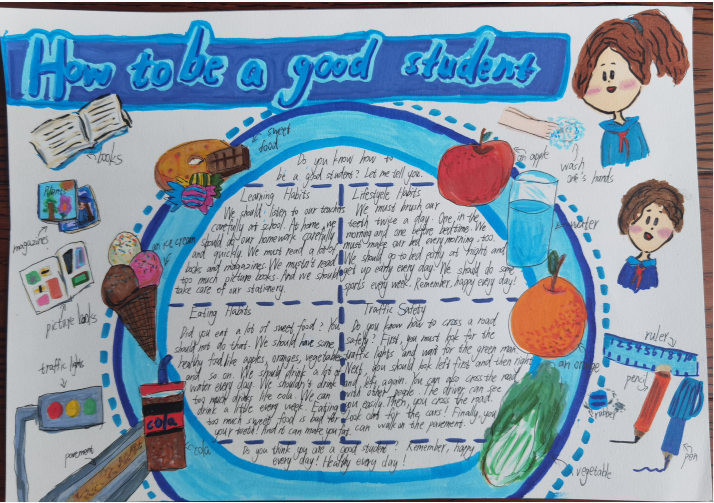 How to be a good student
books
sweet
food
an apple
wash
one's hands
magazines
picture books
an ice cream
water
traffic light
pavement
cola
cola
an orange
ruler
pencil
rubber
pen
vegetable
Do you know how to
be a good student? Let me tell you.
Learning Habits
We should listen to our teachers
carefully at school. At home, we
should do our homework carefully
and quickly. We must read a lot of
books and magazines. We mustn't read
too much picture books. And we should
take care of our stationery.
Lifestyle Habits
We must brush our
teeth twice a day. One in the
morning and one before bedtime. We
must make our bed every morning, too.
We should go to bed early at night and
get up early every day. We should do some
sports every week. Remember, happy every day!
Eating Habits
Did you eat a lot of sweet food? You
should not do that. We should have some
healthy food like apples, oranges, vegetables
and so on. We should drink a lot of
water every day. We shouldn't drink
too much drink like cola. We can
drink a little every week. Eating
too much sweet food is bad for
your teeth! And it can make you fat.
Traffic Safety
Do you know how to cross a road
safely? First, you must look for the
traffic lights and wait for the green man.
Next, you should look left first and then right
and left again. You can also cross the road
with other people. The driver can see
you easily. Then, you cross the road.
Look out for the cars! Finally, you
can walk on the pavement.
Do you think you are a good student? Remember, happy
every day! Healthy every day!